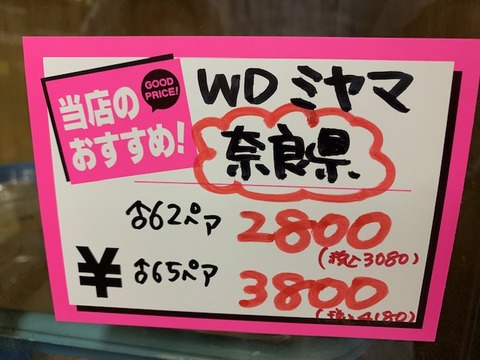 当店の
おすすめ!
GOOD
PRICE!
WDミヤマ
奈良県
♂62ペア 2800
(税込3080)
¥
♂65ペア 3800
(税込4180)